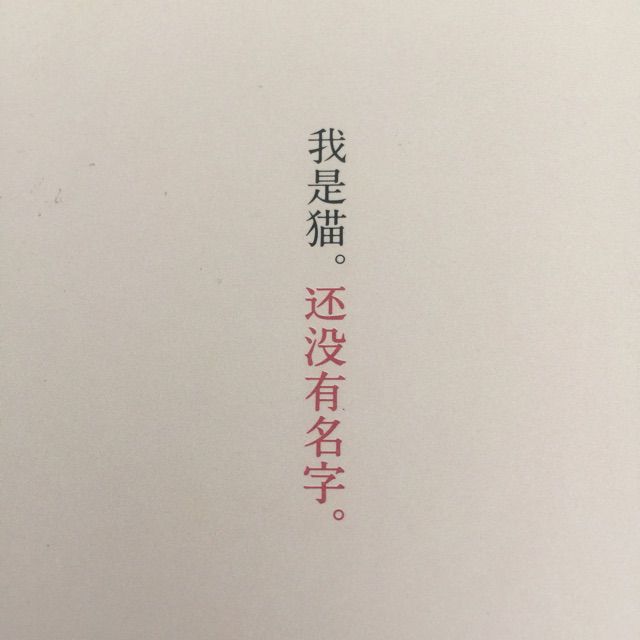 我是猫。还没有名字。